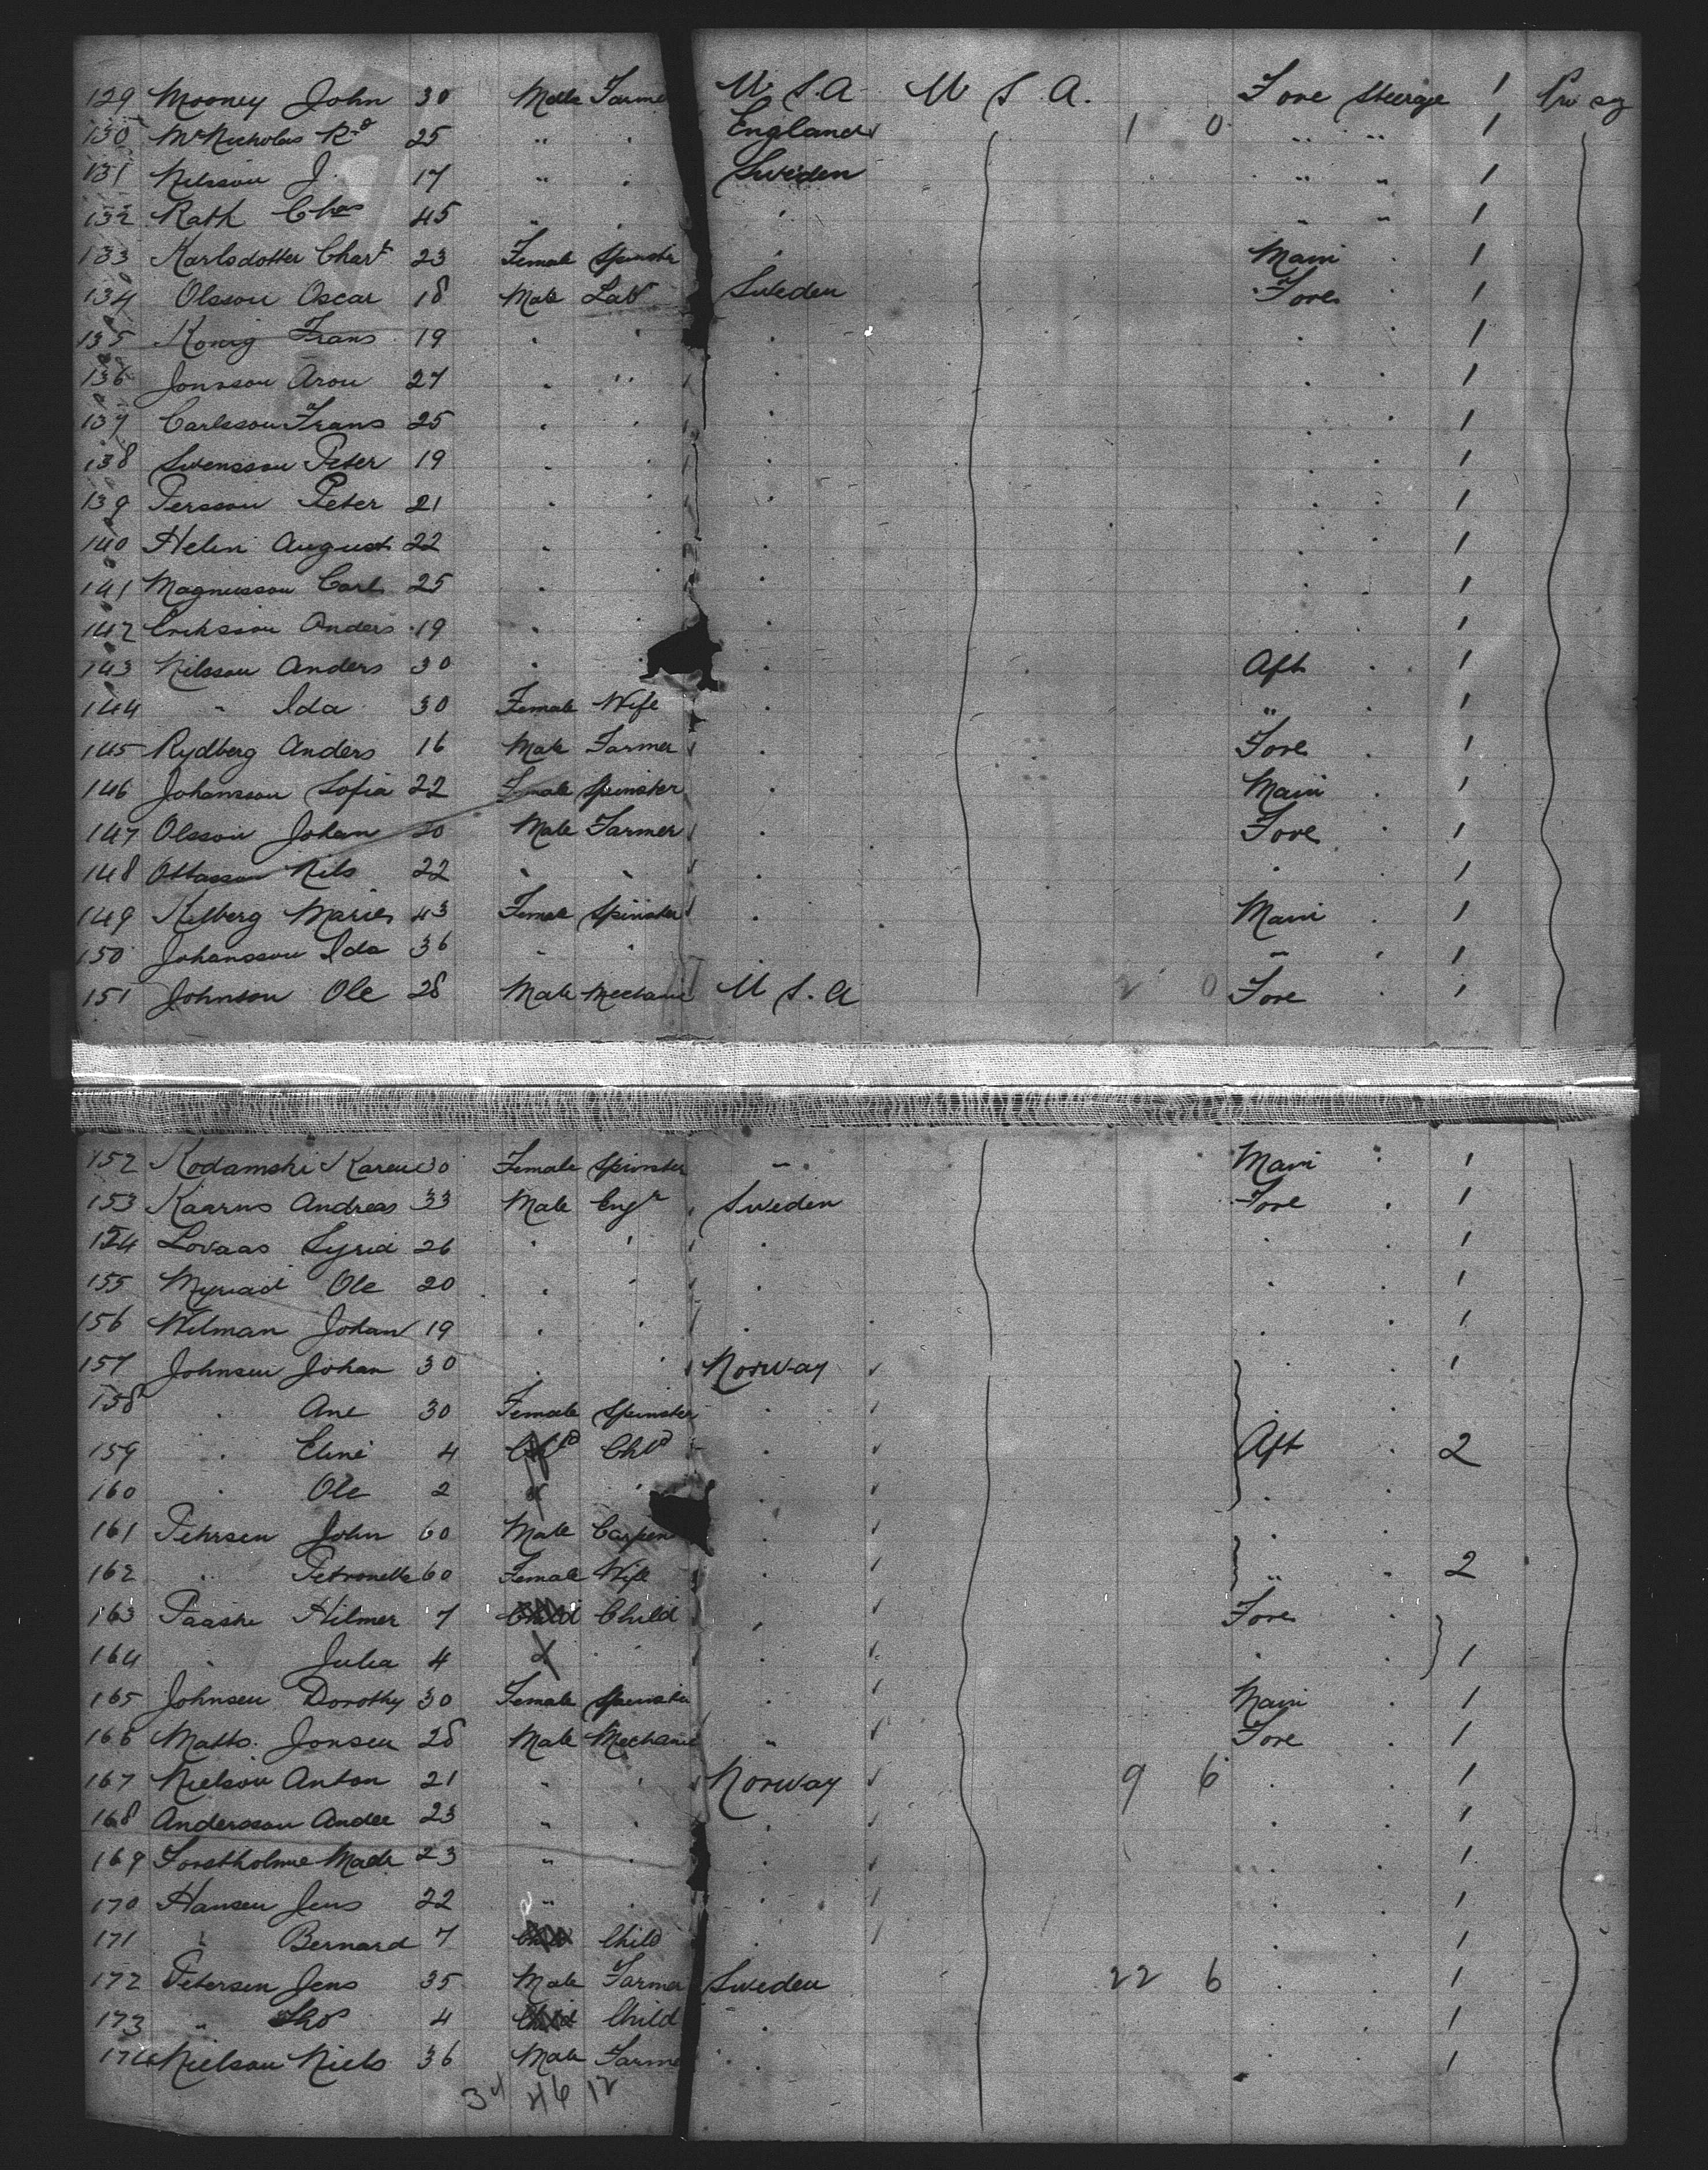 129 Mooney John 30 Male Farme U S. A U S. A. Fore Steerage 1
130 McNicholas Rd 25 " " England 1 0 " " 1
131 Nilsson J. 17 " " Sweden " " 1
132 Rath Chas 45 " " " " " 1
133 Karlsdotter Chart 23 Female Spinster " Main " 1
134 Olsson Oscar 18 Male Labr Sweden Fore " 1
135 Konig Frans 19 " " " " " 1
136 Jonsson Aron 27 " " " " " 1
137 Carlsson Frans 25 " " " " " 1
138 Svensson Peter 19 " " " " " 1
139 Persson Peter 21 " " " " " 1
140 Helin August 22 " " " " 1
141 Magnusson Carl 25 " " " " 1
142 Eriksson Anders 19 " " " 1
143 Nilsson Anders 30 " " Aft " 1
144 " Ida 30 Female Wife " " " 1
145 Rydberg Anders 16 Male Farmer " Fore " 1
146 Johansson Sofia 22 Female Spinster " Main " 1
147 Olsson Johan 20 Male Farmer " Fore " 1
148 Ottasson Nils 22 " " " " " 1
149 Kilberg Maries 43 Female Spinster " Main " 1
150 Johansson Ida 36 " " " " 1
151 Johnson Ole 28 Male Mechanic U S. A 2 0 Fore " 1
152 Kodamski Karen 30 Female Spinster " Main " 1
153 Kaarns Andreas 33 Male Engr Sweden Fore " 1
154 Lovaas Syria 26 " " " " " 1
155 Myriad Ole 20 " " " " " 1
156 Wilman Johan 19 " " " " " 1
157 Johnsen Johan 30 " " Norway " " 1
158 " Ane 30 Female Spinster " " "
159 " Eline 4 Chd Chld " Aft " 2
160 " Ole 2 " " " "
161 Pehrsen John 60 Male Carpen " " "
162 " Petronella 60 Female Wife " " " 2
163 Paaske Hilmer 7 Child Child " Fore "
164 " Julia 4 " " " " 1
165 Johnsen Dorothy 30 Female Spinster " Main " 1
166 Matts. Jonsen 28 Male Mechanic " Fore " 1
167 Nielson Anton 21 " " Norway 9 6 " " 1
168 Andersson Andee 23 " " " " " 1
169 Forstholme Mads 23 " " " " " 1
170 Hansen Jens 22 " " " " " 1
171 " Bernard 7 Child Child " " " 1
172 Petersen Jens 35 Male Farmer Sweden 22 6 " " 1
173 " Thos 4 Child Child " " " 1
174 Nielson Niels 36 Male Farme " " " 1
34 46 12